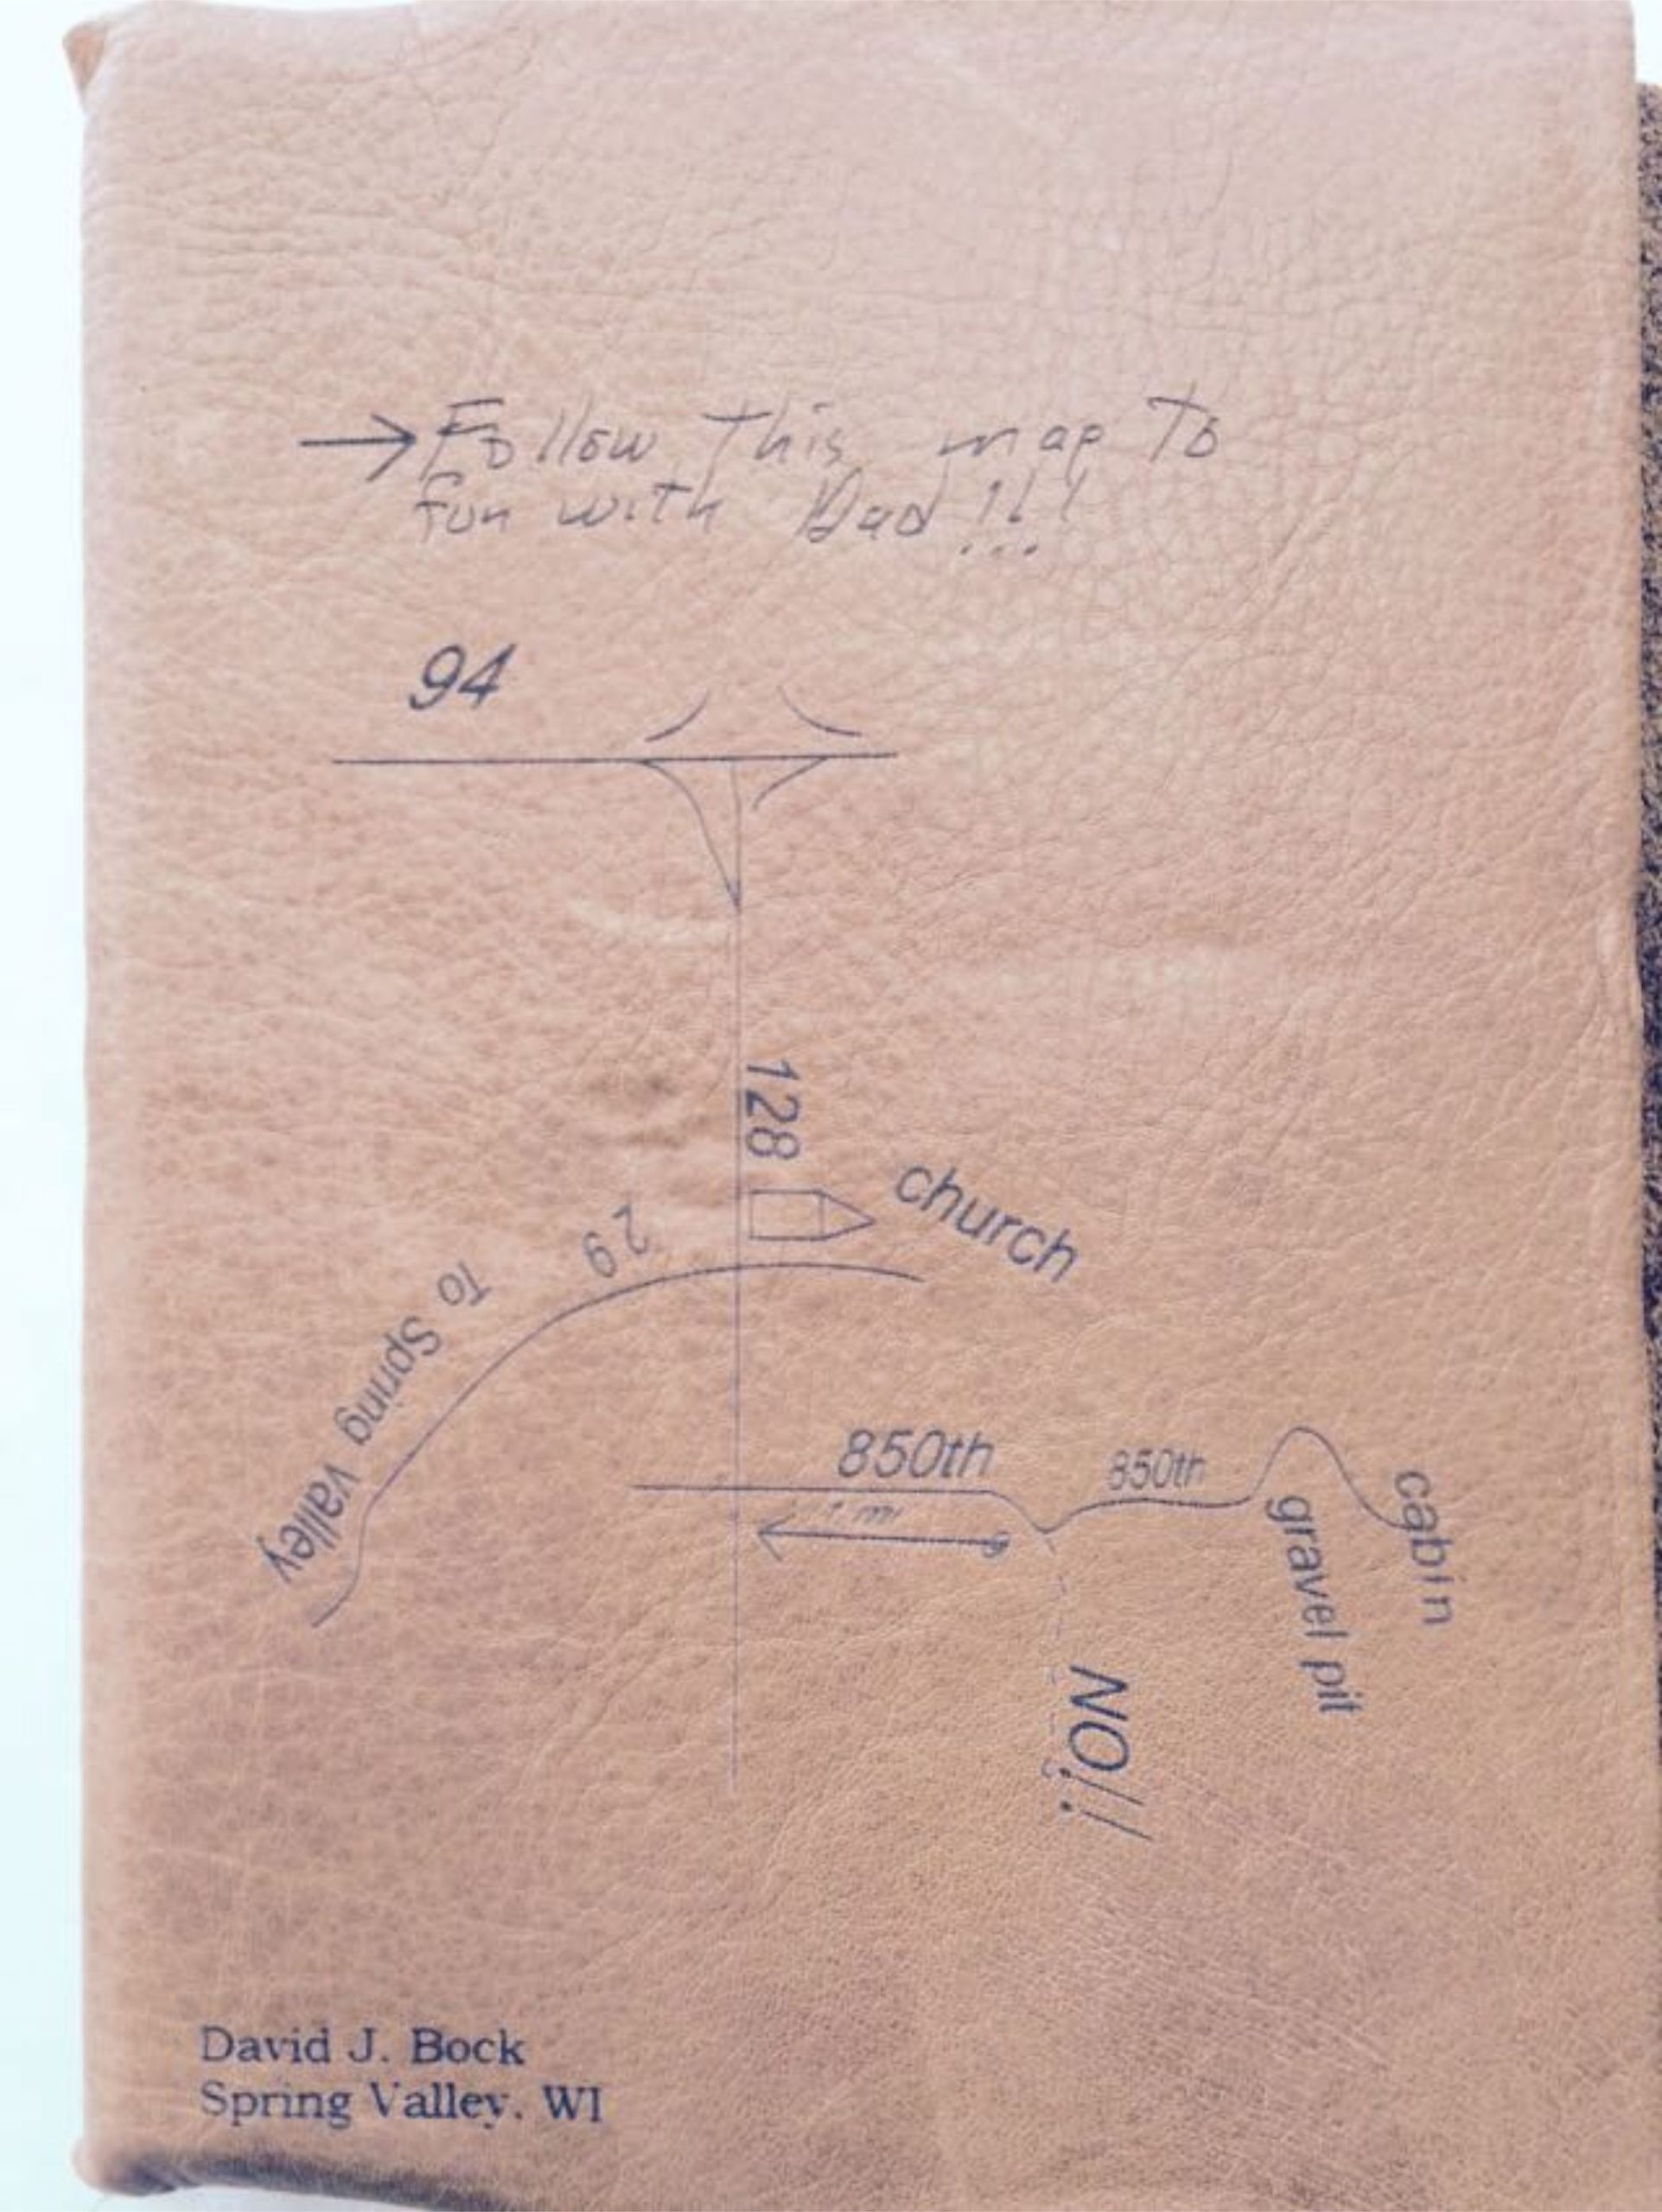 →Follow This map To
fun with Dad!!!
94
128
church
29
To Spring Valley
850th
850th
1 mi
cabin
gravel pit
NO!!
David J. Bock
Spring Valley, WI